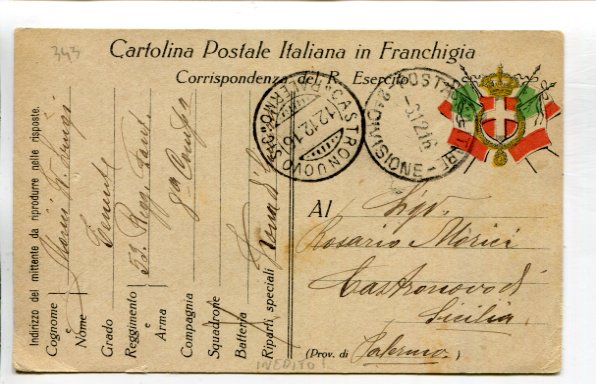 343
Cartolina Postale Italiana in Franchigia
Corrispondenza del R. Esercito
CASTRONUOVO S. (PALERMO)
12.12.16
POSTA MILITARE
2ª DIVISIONE
-6.12.16
Indirizzo del mittente da riprodurre nelle risposte.
Cognome e Nome Morici Luigi
Grado Tenente
Reggimento e Arma 53° Regg. Fant.
Compagnia 9ª Comp.
Squadrone
Batteria
Riparti speciali Zona di
Al Sigr.
Rosario Morici
Castronovo di
Sicilia
(Prov. di Palermo)
INEDITO!